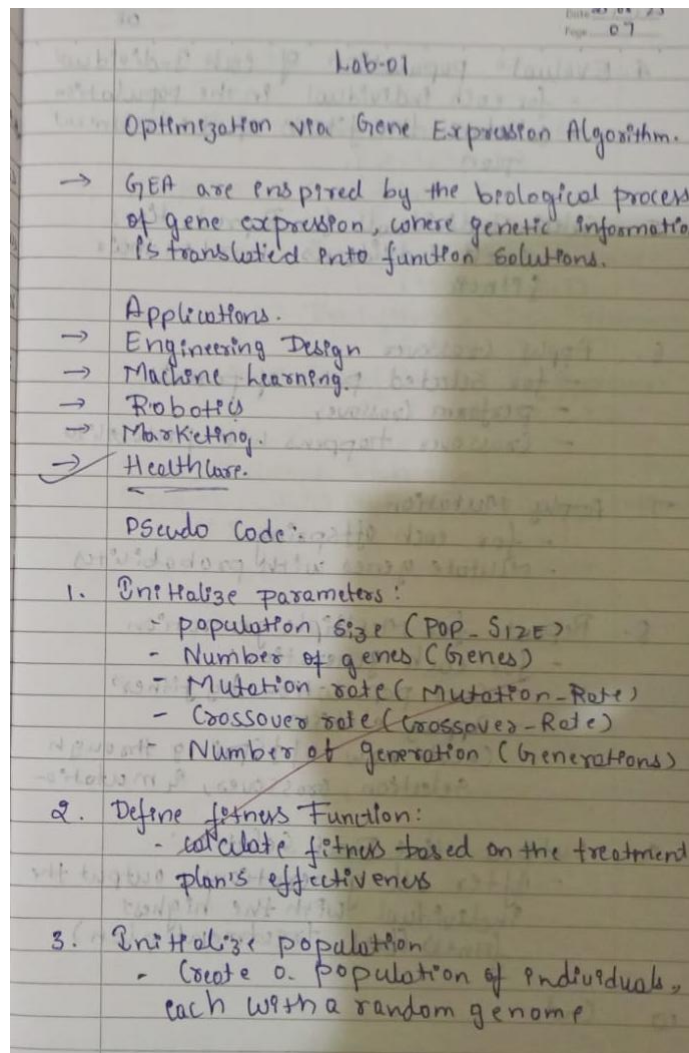 Date
Page 07
Lab-01
Optimization via Gene Expression Algorithm.
→ GEA are inspired by the biological process
of gene expression, where genetic informatio
is translatied into function solutions.
Applications.
→ Engineering Design
→ Machine Learning.
→ Robotics
→ Marketing.
→ Healthcare.
Pseudo Code:
1. Initialize parameters:
- population size (POP_SIZE)
- Number of genes (Genes)
- Mutation rate (Mutation-Rate)
- Crossover rate (Crossover-Rate)
- Number of generation (Generations)
2. Define fitness Function:
- calculate fitness based on the treatment
plan's effectiveness
3. Initialize population
- Create a population of individuals,
each with a random genome